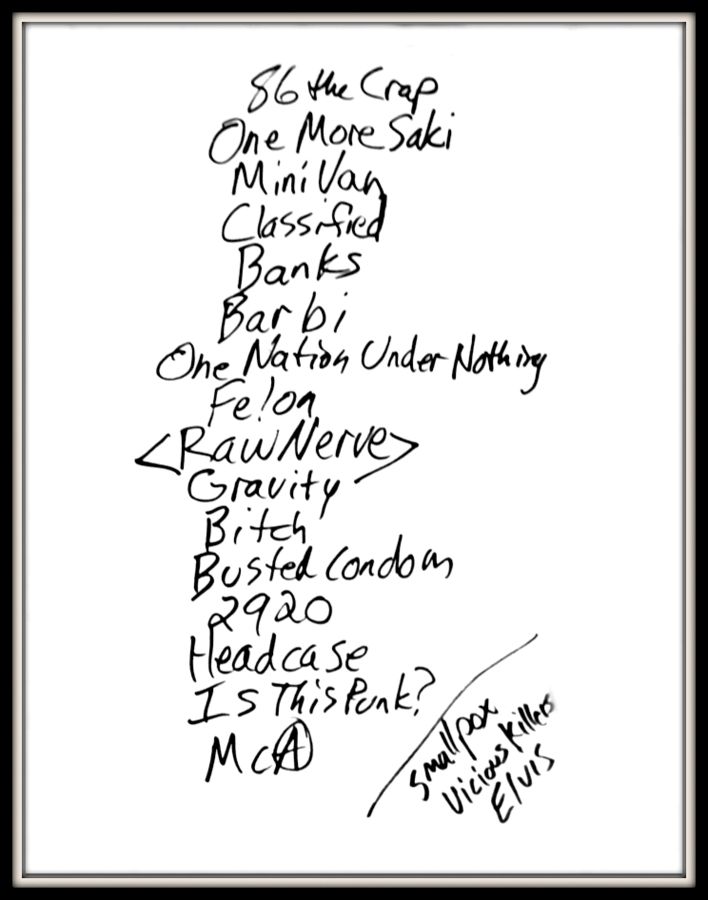 86 the Crap
One More Saki
Mini Van
Classified
Banks
Barbi
One Nation Under Nothing
Felon
<Raw Nerve>
Gravity
Bitch
Busted Condom
2920
Headcase
Is This Punk?
McA
Smallpox
Vicious Killers
Elvis